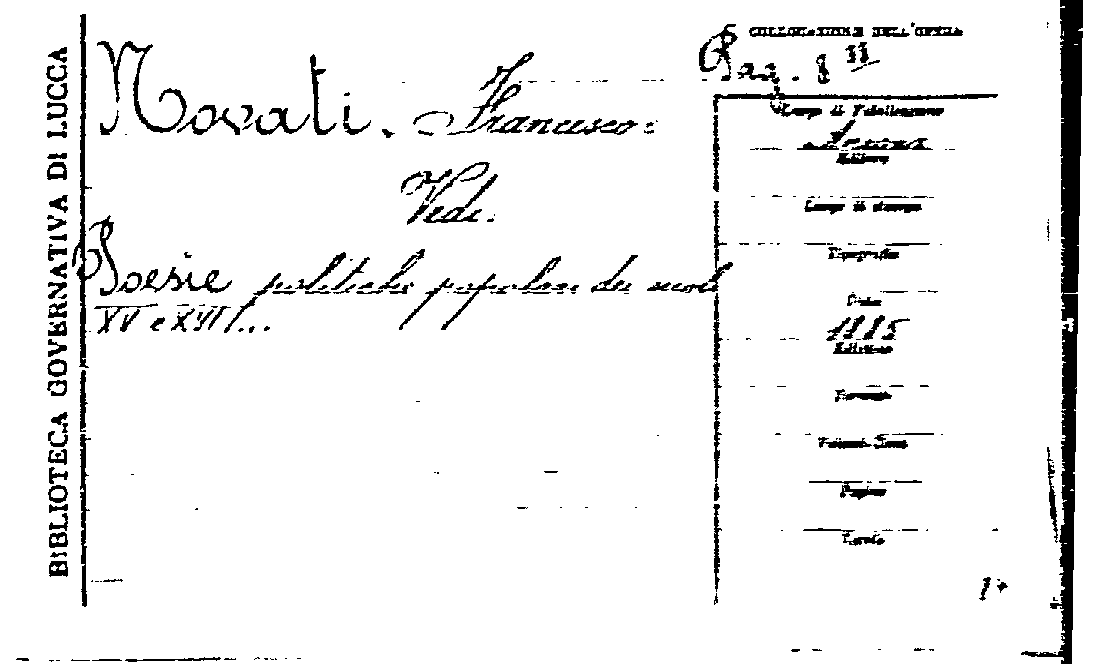 BIBLIOTECA GOVERNATIVA DI LUCCA
Novati. Francesco.
Vedi.
Poesie politiche popolari dei secoli
XV e XVI...
COLLOCAZIONE DELL'OPERA
Pag. 8
Luogo di Pubblicazione
Editore
Luogo di stampa
Tipografia
Data
1885
Edizione
Formato
Volumi-Tomi
Pagine
Tavole